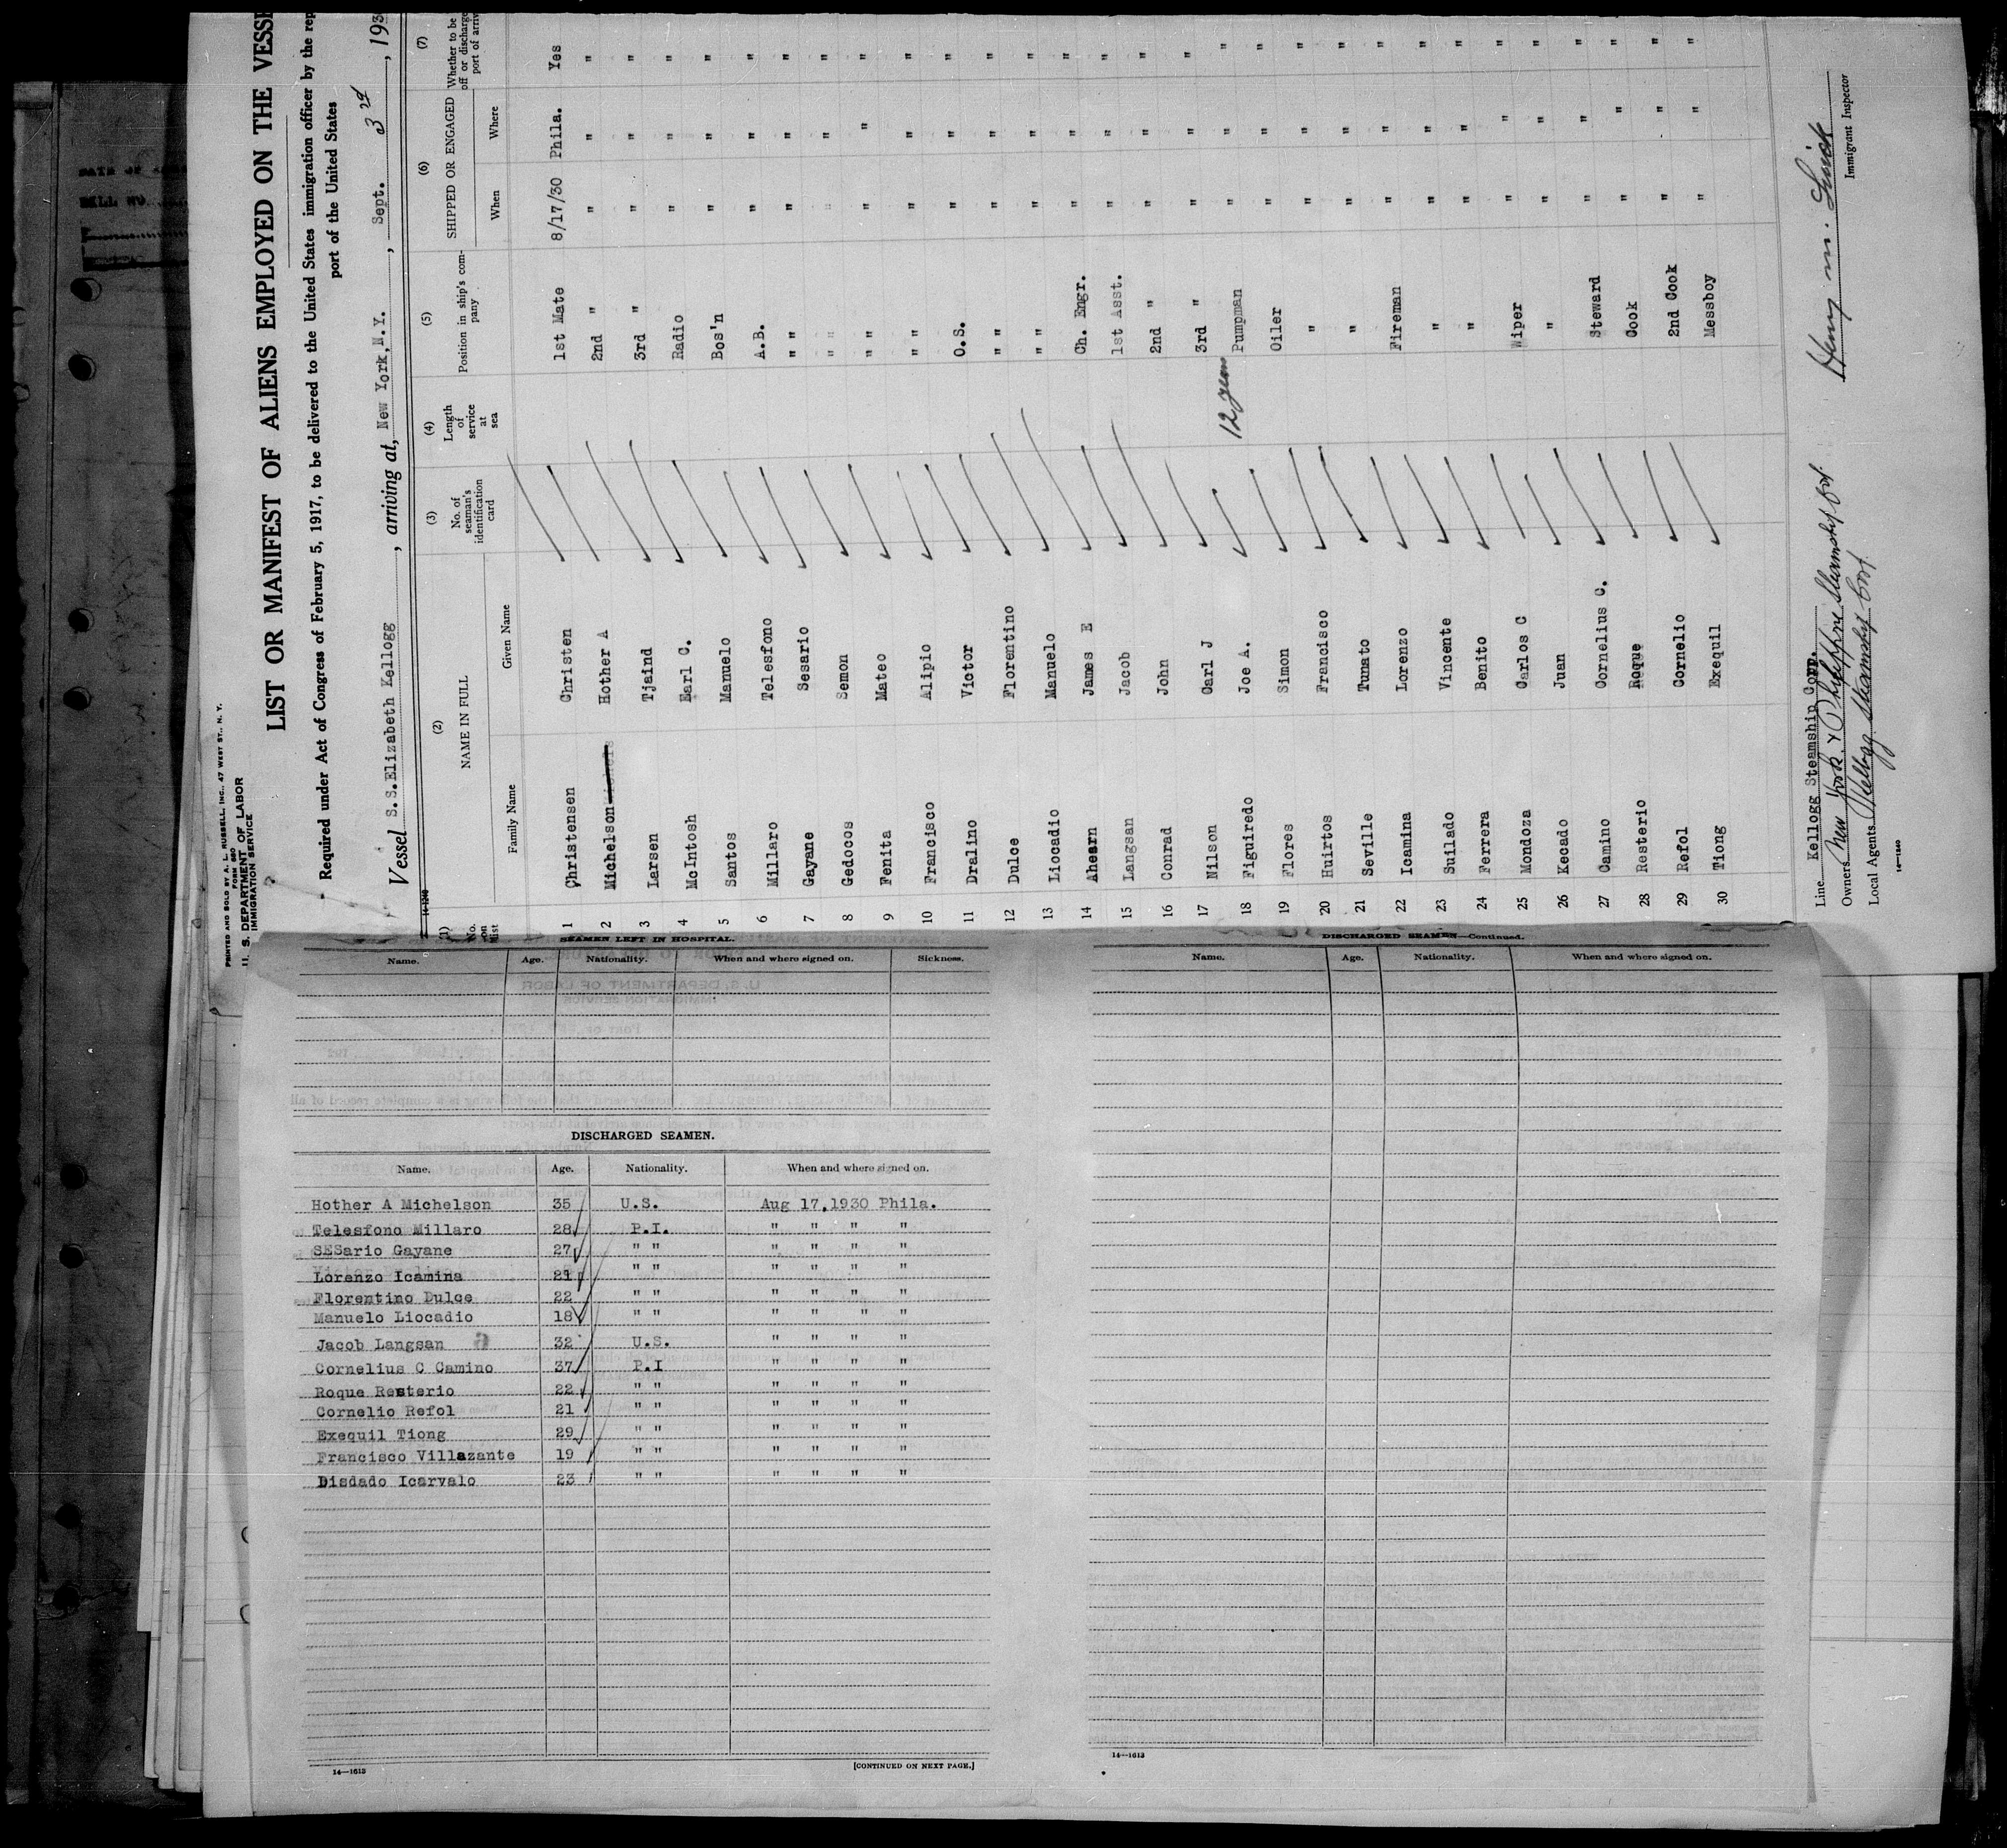 PRINTED AND SOLD BY A. L. RUSSELL, INC., 47 WEST ST., N. Y.
FORM 680
U. S. DEPARTMENT OF LABOR
IMMIGRATION SERVICE
LIST OR MANIFEST OF ALIENS EMPLOYED ON THE VESSE
Required under Act of Congress of February 5, 1917, to be delivered to the United States immigration officer by the rep
port of the United States
Vessel S.S.Elizabeth Kellogg, arriving at, New York,N.Y., Sept. 3rd, 193
14-1240
(1) (2) (3) (4) (5) (6) (7)
No. on list NAME IN FULL No. of seaman's identification card Length of service at sea Position in ship's company SHIPPED OR ENGAGED Whether to be off or discharge port of arriv
Family Name Given Name When Where
1 Christensen Christen 1st Mate 8/17/30 Phila. Yes
2 Michelson Hother A 2nd " " " "
3 Larsen Tjaind 3rd " " " "
4 McIntosh Earl C. Radio " " "
5 Santos Manuelo Bos'n " " "
6 Millaro Telesfono A.B. " " "
7 Gayane Sesario " " " " "
8 Gedocos Semon " " " " "
9 Fenita Mateo " " " " "
10 Francisco Alipio " " " " "
11 Dralino Victor O.S. " " "
12 Dulce Florentino " " " " "
13 Liocadio Manuelo " " " " "
14 Ahearn James E Ch. Engr. " " "
15 Langsan Jacob 1st Asst. " " "
16 Conrad John 2nd " " " "
17 Nilson Carl J 3rd " " " "
18 Figuiredo Joe A. 12 years Pumpman " " "
19 Flores Simon Oiler " " "
20 Huirtos Francisco " " " "
21 Seville Tunato " " " "
22 Icamina Lorenzo Fireman " " "
23 Suilado Vincente " " " "
24 Ferrera Benito " " " "
25 Mondoza Carlos C Wiper " " "
26 Kecado Juan " " " "
27 Camino Cornelius C. Steward " " "
28 Resterio Roque Cook " " "
29 Refol Cornelio 2nd Cook " " "
30 Tiong Exequil Messboy " " "
Line Kellogg Steamship Corp.
Owners New York & Philippine Steamship Co.
Local Agents Kellogg Steamship Corp.
Henry M.
Immigrant Inspector
14-1240
SEAMEN LEFT IN HOSPITAL.
Name. Age. Nationality. When and where signed on. Sickness.
DISCHARGED SEAMEN.
Name. Age. Nationality. When and where signed on.
Hother A Michelson 35 U.S. Aug 17,1930 Phila.
Telesfono Millaro 28 P.I. " " " "
SESario Gayane 27 " " " " " "
Lorenzo Icamina 21 " " " " " "
Florentino Dulce 22 " " " " " "
Manuelo Liocadio 18 " " " " " "
Jacob Langsan 32 U.S. " " " "
Cornelius C Camino 37 P.I " " " "
Roque Resterio 22 " " " " " "
Cornelio Refol 21 " " " " " "
Exequil Tiong 29 " " " " " "
Francisco Villazante 19 " " " " " "
Disdado Icarvalo 23 " " " " " "
14—1613
[CONTINUED ON NEXT PAGE.]
DISCHARGED SEAMEN—Continued.
Name. Age. Nationality. When and where signed on.
14—1613